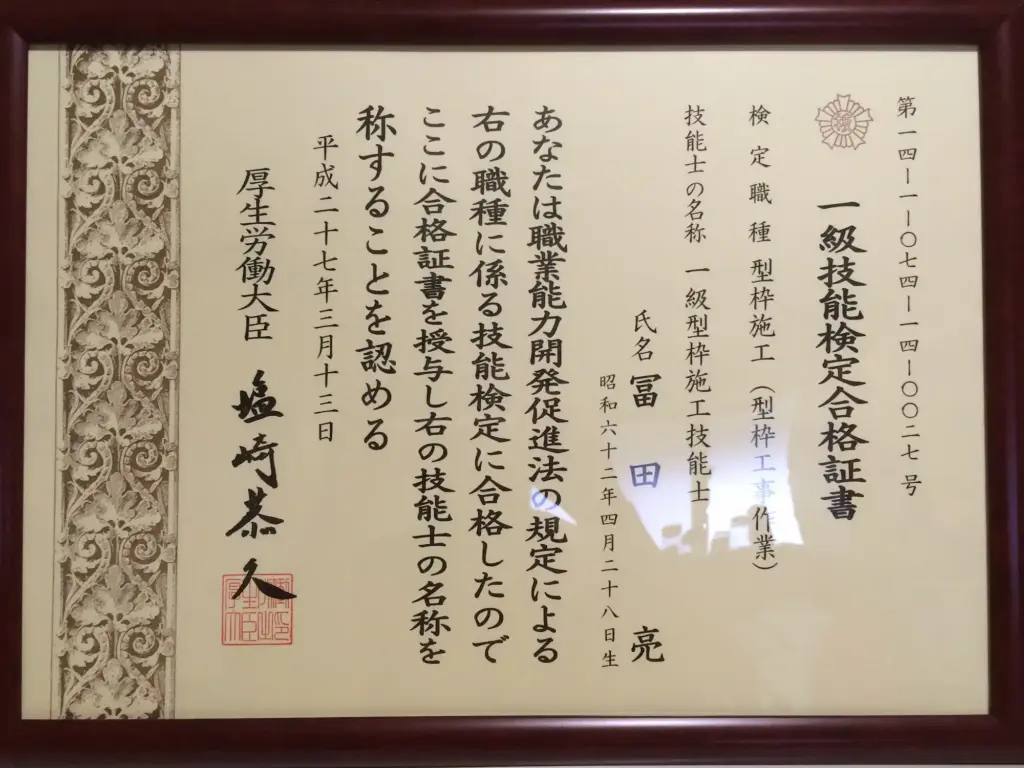 第一四－一－〇七四－一四－〇〇二七号
一級技能検定合格証書
検定職種 型枠施工（型枠工事作業）
技能士の名称 一級型枠施工技能士
氏名 冨田 亮
昭和六十二年四月二十八日生
あなたは職業能力開発促進法の規定による
右の職種に係る技能検定に合格したので
ここに合格証書を授与し右の技能士の名称を
称することを認める
平成二十七年三月十三日
厚生労働大臣 塩崎恭久